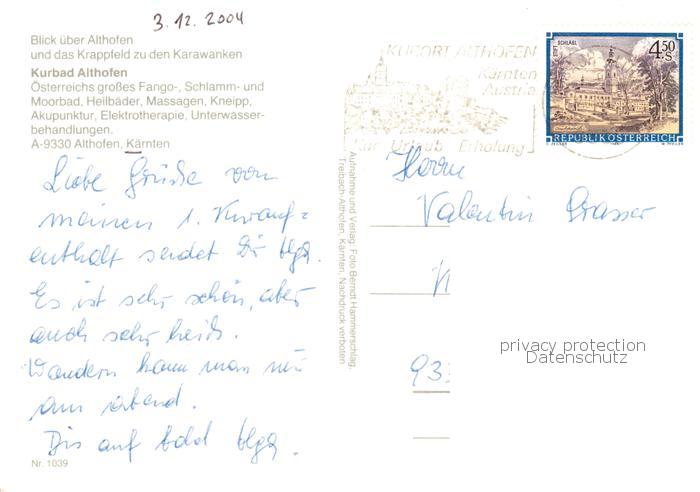 3.12.2004
Blick über Althofen
und das Krappfeld zu den Karawanken
Kurbad Althofen
Österreichs großes Fango-, Schlamm- und
Moorbad, Heilbäder, Massagen, Kneipp,
Akupunktur, Elektrotherapie, Unterwasser-
behandlungen.
A-9330 Althofen, Kärnten
Liebe Grüße von
meinen 1. Kurauf=
enthalt sendet Dir Helga.
Es ist sehr schön, aber
auch sehr heiß.
Wandern kann man nur
am Abend.
Bis auf bald Helga.
Nr. 1039
Aufnahme und Verlag: Foto Berndt Hammerschlag,
Treibach-Althofen, Kärnten, Nachdruck verboten
KURORT ALTHOFEN
Kärnten
Austria
Kur Urlaub Erholung
STIFT SCHLÄGL
4.50
S
REPUBLIK ÖSTERREICH
Herrn
Valentin Grasser
93
privacy protection
Datenschutz